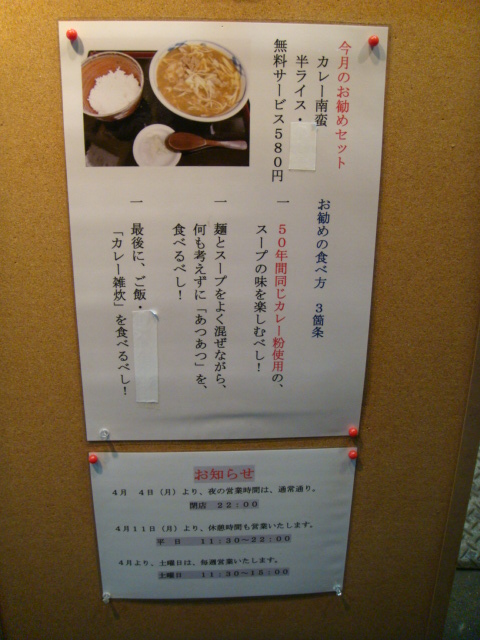 今月のお勧めセット
カレー南蛮
半ライス・
無料サービス580円
お勧めの食べ方　3箇条
一　50年間同じカレー粉使用の、
スープの味を楽しむべし!
一　麺とスープをよく混ぜながら、
何も考えずに「あつあつ」を、
食べるべし!
一　最後に、ご飯・
「カレー雑炊」を食べるべし!
お知らせ
4月　4日（月）より、夜の営業時間は、通常通り。
閉店　22:00
4月11日（月）より、休憩時間も営業いたします。
平　日　11:30～22:00
4月より、土曜日は、毎週営業いたします。
土曜日　11:30～15:00